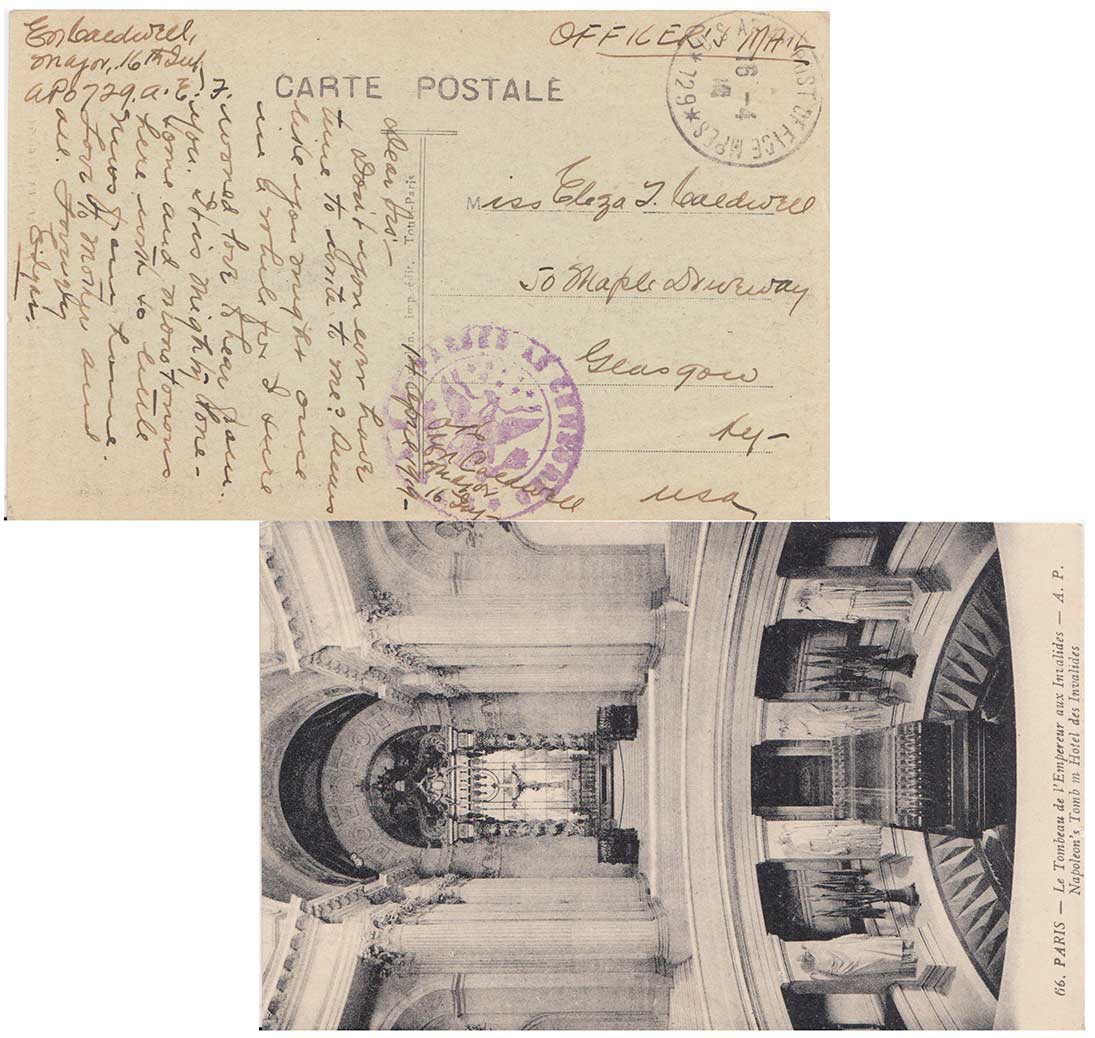 Caldwell,
Major, 16th Inf,
APO 729. A. E. F.
OFFICER'S MAIL
POST OFFICE MPES
*729*
CARTE POSTALE
Dear Sis:-
Don't you ever have
time to write to me? Seems
like you might once
in a while for I sure
would love to hear from
you. It is mighty lone-
some and monotonous
here with so little
news from home.
Love to Mother and
all. Lovingly
Edgar.
imp. édit., Toul-Paris
Miss Eliza T. Caldwell
50 Maple Driveway
Glasgow
Ky-
USA
PASSED AS CENSORED
OK
Caldwell
Major
16 Inf-
66. PARIS — Le Tombeau de l'Empereur aux Invalides — A. P.
Napoleon's Tomb m Hotel des Invalides